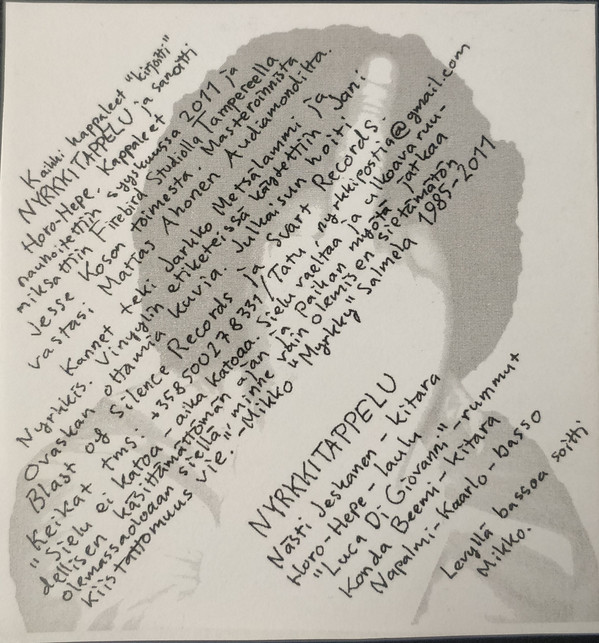 Kaikki kappaleet "kirjoitti"
NYRKKITAPPELU ja sanoitti
Horo-Hepe. Kappaleet
nauhoitettiin syyskuussa 2011 ja
miksattiin Firebird Studiolla Tampereella
Jesse Koson toimesta. Masteroinnista
vastasi Mattias Ahonen Audiamondilta.
Kannet teki Jarkko Metsälammi ja
Nyrkkis. Vinyylin etiketeissä käytettiin Jani
Ovaskan ottamia kuvia. Julkaisun hoiti
Blast of Silence Records ja Svart Records.
Keikat tms. +358500278331/Tatu, nyrkkipostia@gmail.com
"Sielu ei katoa - aika katoaa. Sielu vaeltaa ja ulkoava ruu-
dellisen käsittämättömän ajan ja paikan myötä jatkaa
olemassaoloaan siellä, minne vain olemisen sietämätön
kiistattomuus vie." -Mikko "Myrkky" Salmela 1985-2011
NYRKKITAPPELU
Nästi Jeskanen - kitara
Horo-Hepe - laulu
"Luca Di Giovanni" - rummut
Konda Beemi - kitara
Napalmi-Kaarlo - basso
Levyllä bassoa soitti
Mikko.